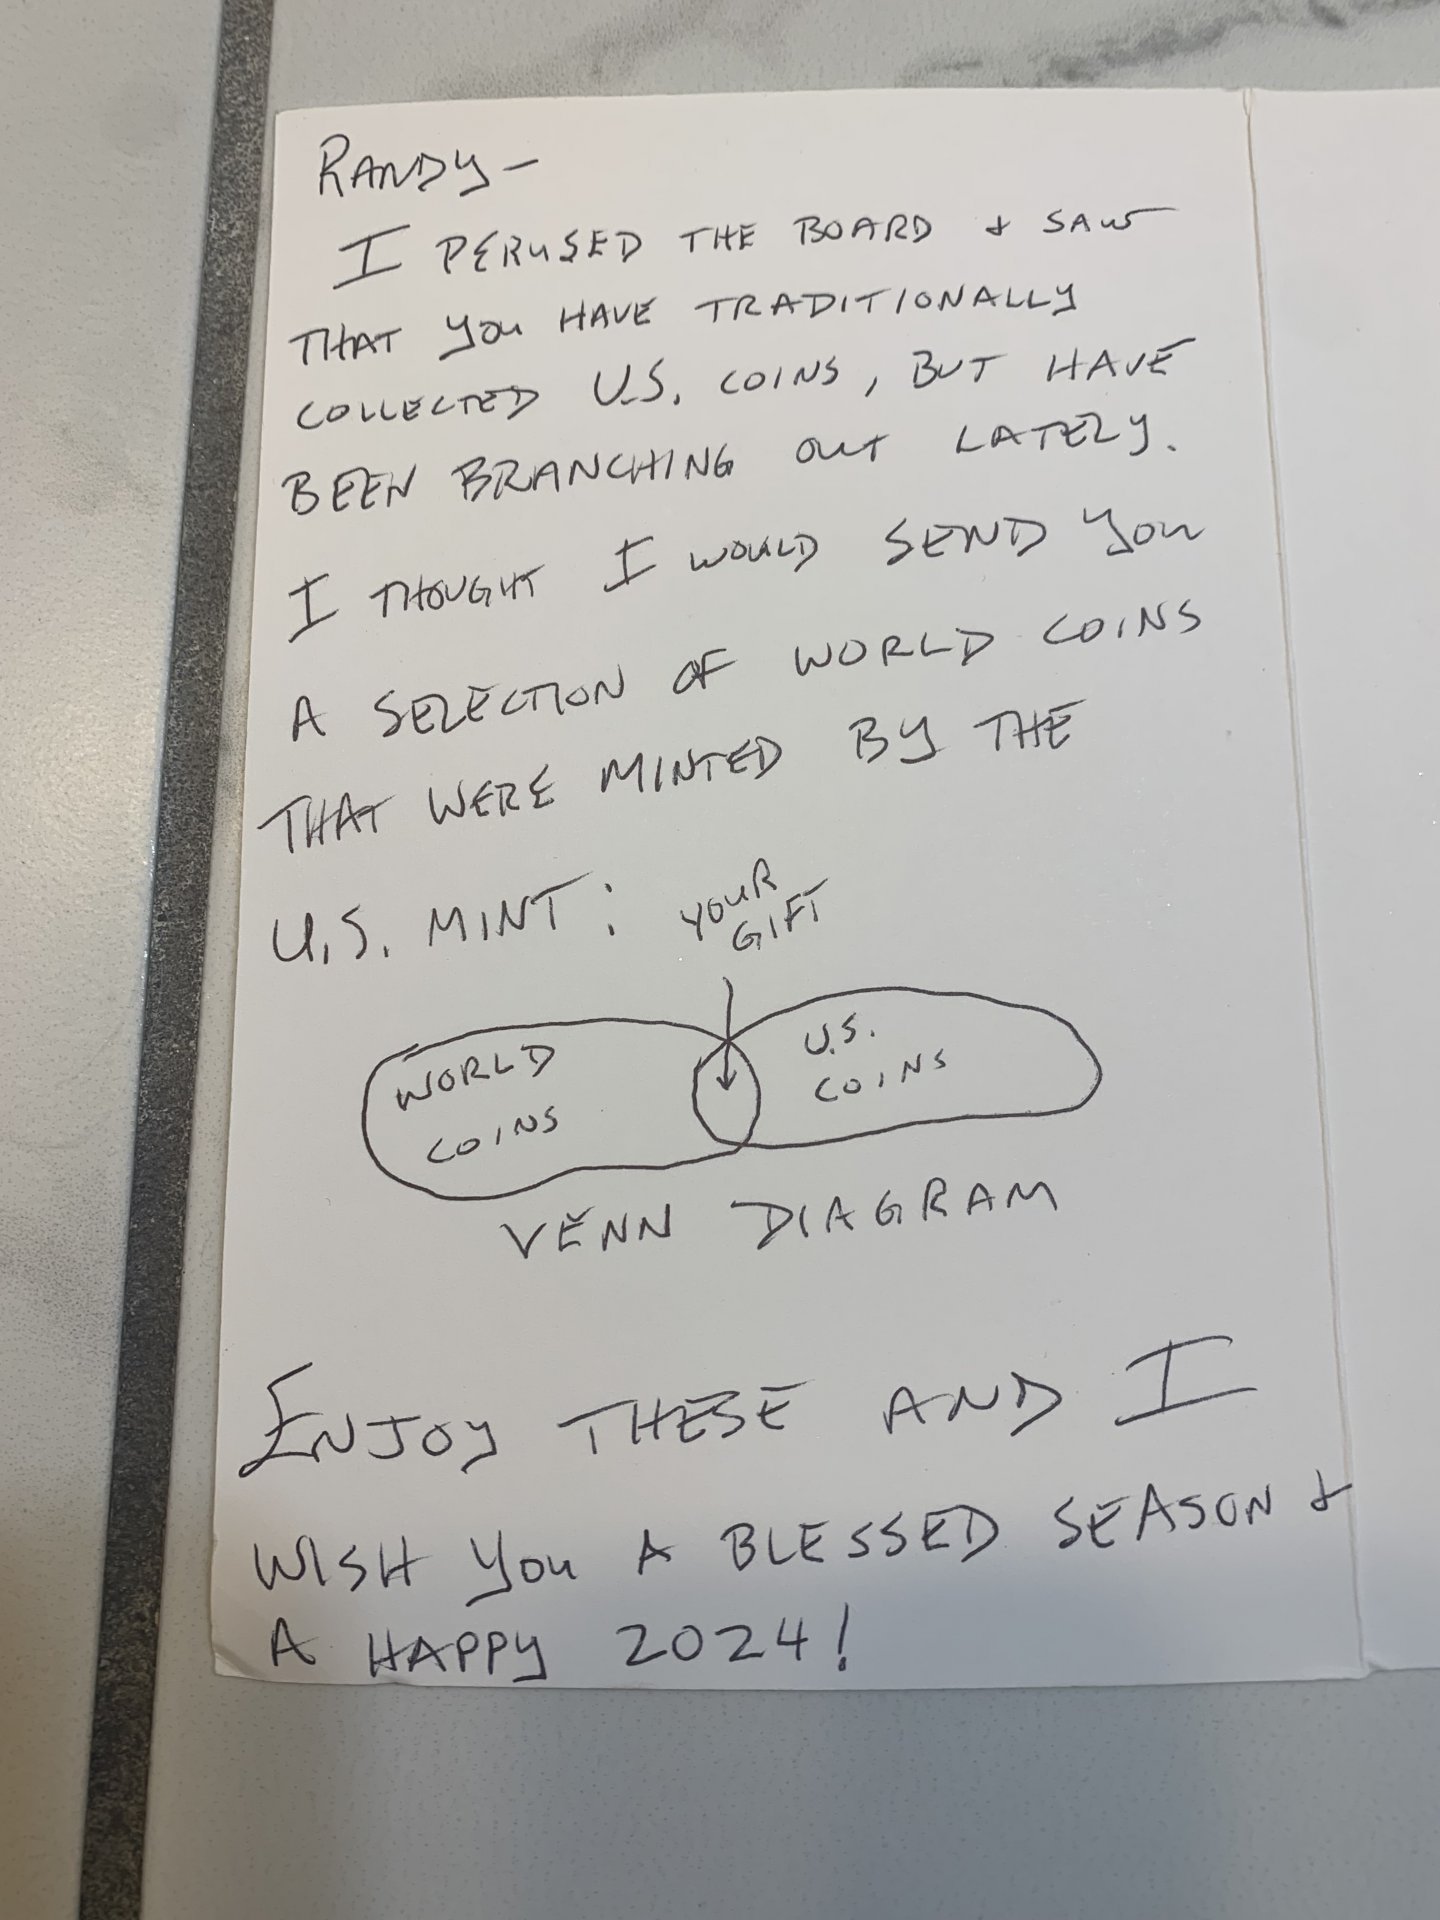 RANDY-
I PERUSED THE BOARD & SAW
THAT YOU HAVE TRADITIONALLY
COLLECTED U.S. COINS, BUT HAVE
BEEN BRANCHING OUT LATELY.
I THOUGHT I WOULD SEND YOU
A SELECTION OF WORLD COINS
THAT WERE MINTED BY THE
U.S. MINT:
YOUR
GIFT
WORLD
COINS
U.S.
COINS
VENN DIAGRAM
ENJOY THESE AND I
WISH YOU A BLESSED SEASON &
A HAPPY 2024!